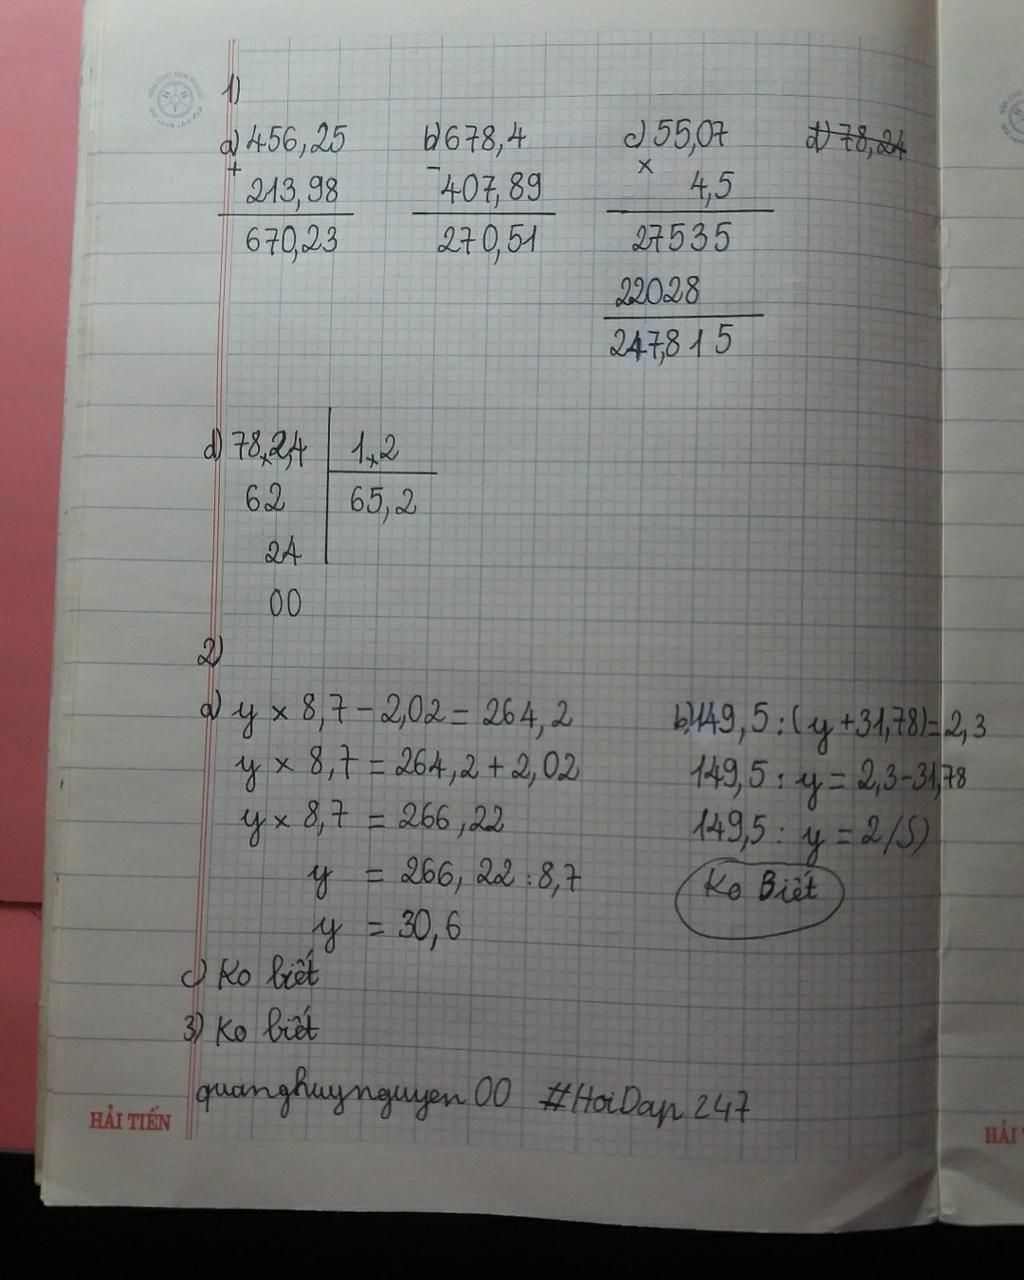 1)
a) 456,25 b) 678,4 c) 55,07 d) 78,24
+ - ×
213,98 407,89 4,5
670,23 270,51 27535
22028
247,815
d) 78,2,4 1,2
62 65,2
24
00
2)
a) y × 8,7 - 2,02 = 264,2 b) 149,5 : (y + 31,78) = 2,3
y × 8,7 = 264,2 + 2,02 149,5 : y = 2,3 - 31,78
y × 8,7 = 266,22 149,5 : y = 2
y = 266,22 : 8,7 Ko Biết
y = 30,6
c) Ko biết
3) Ko biết
quanghuynguyen00 #HoiDap247
HẢI TIẾN
HẢI